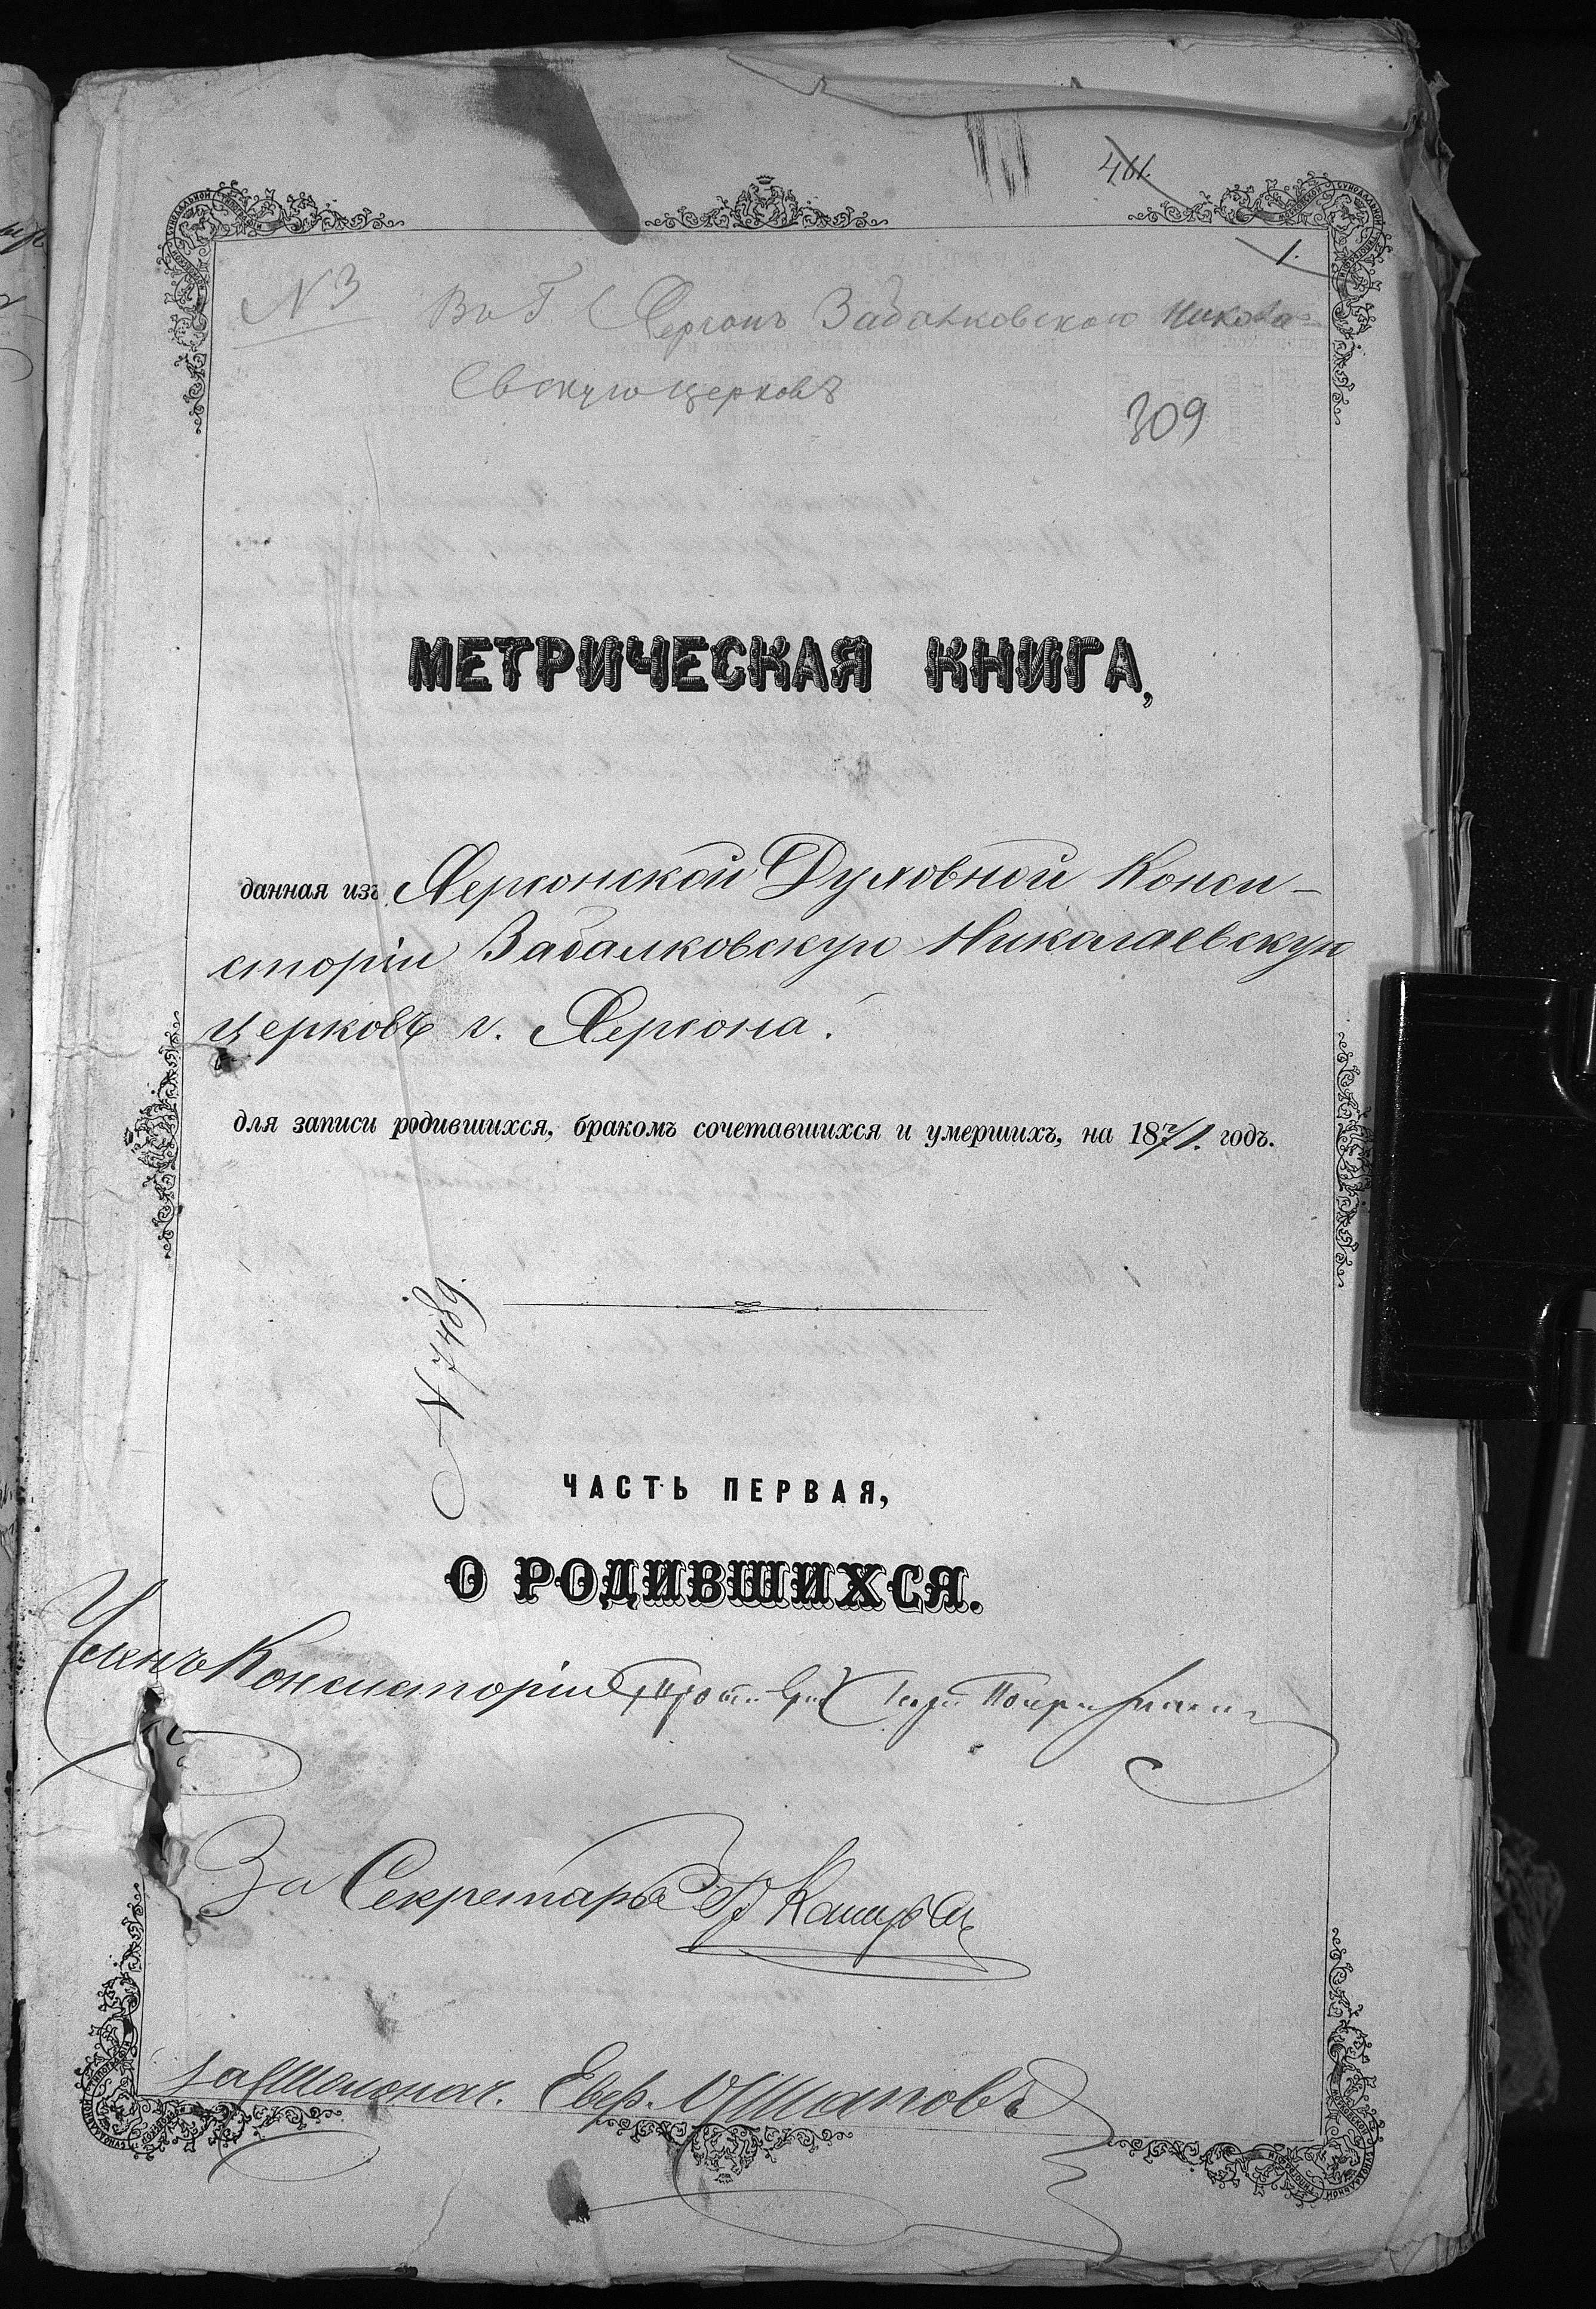 461.
1.
N 3 Въ Г. Херсонъ Забалковскою Никола=
евскую церковь
309
МЕТРИЧЕСКАЯ КНИГА,
данная изъ Херсонской Духовной Конси-
сторіи Забалковскую Николаевскую
церковь г. Херсона.
для записи родившихся, бракомъ сочетавшихся и умершихъ, на 1871. годъ.
N 7489.
ЧАСТЬ ПЕРВАЯ,
О РОДИВШИХСЯ.
Членъ Консисторіи
За Секретаря